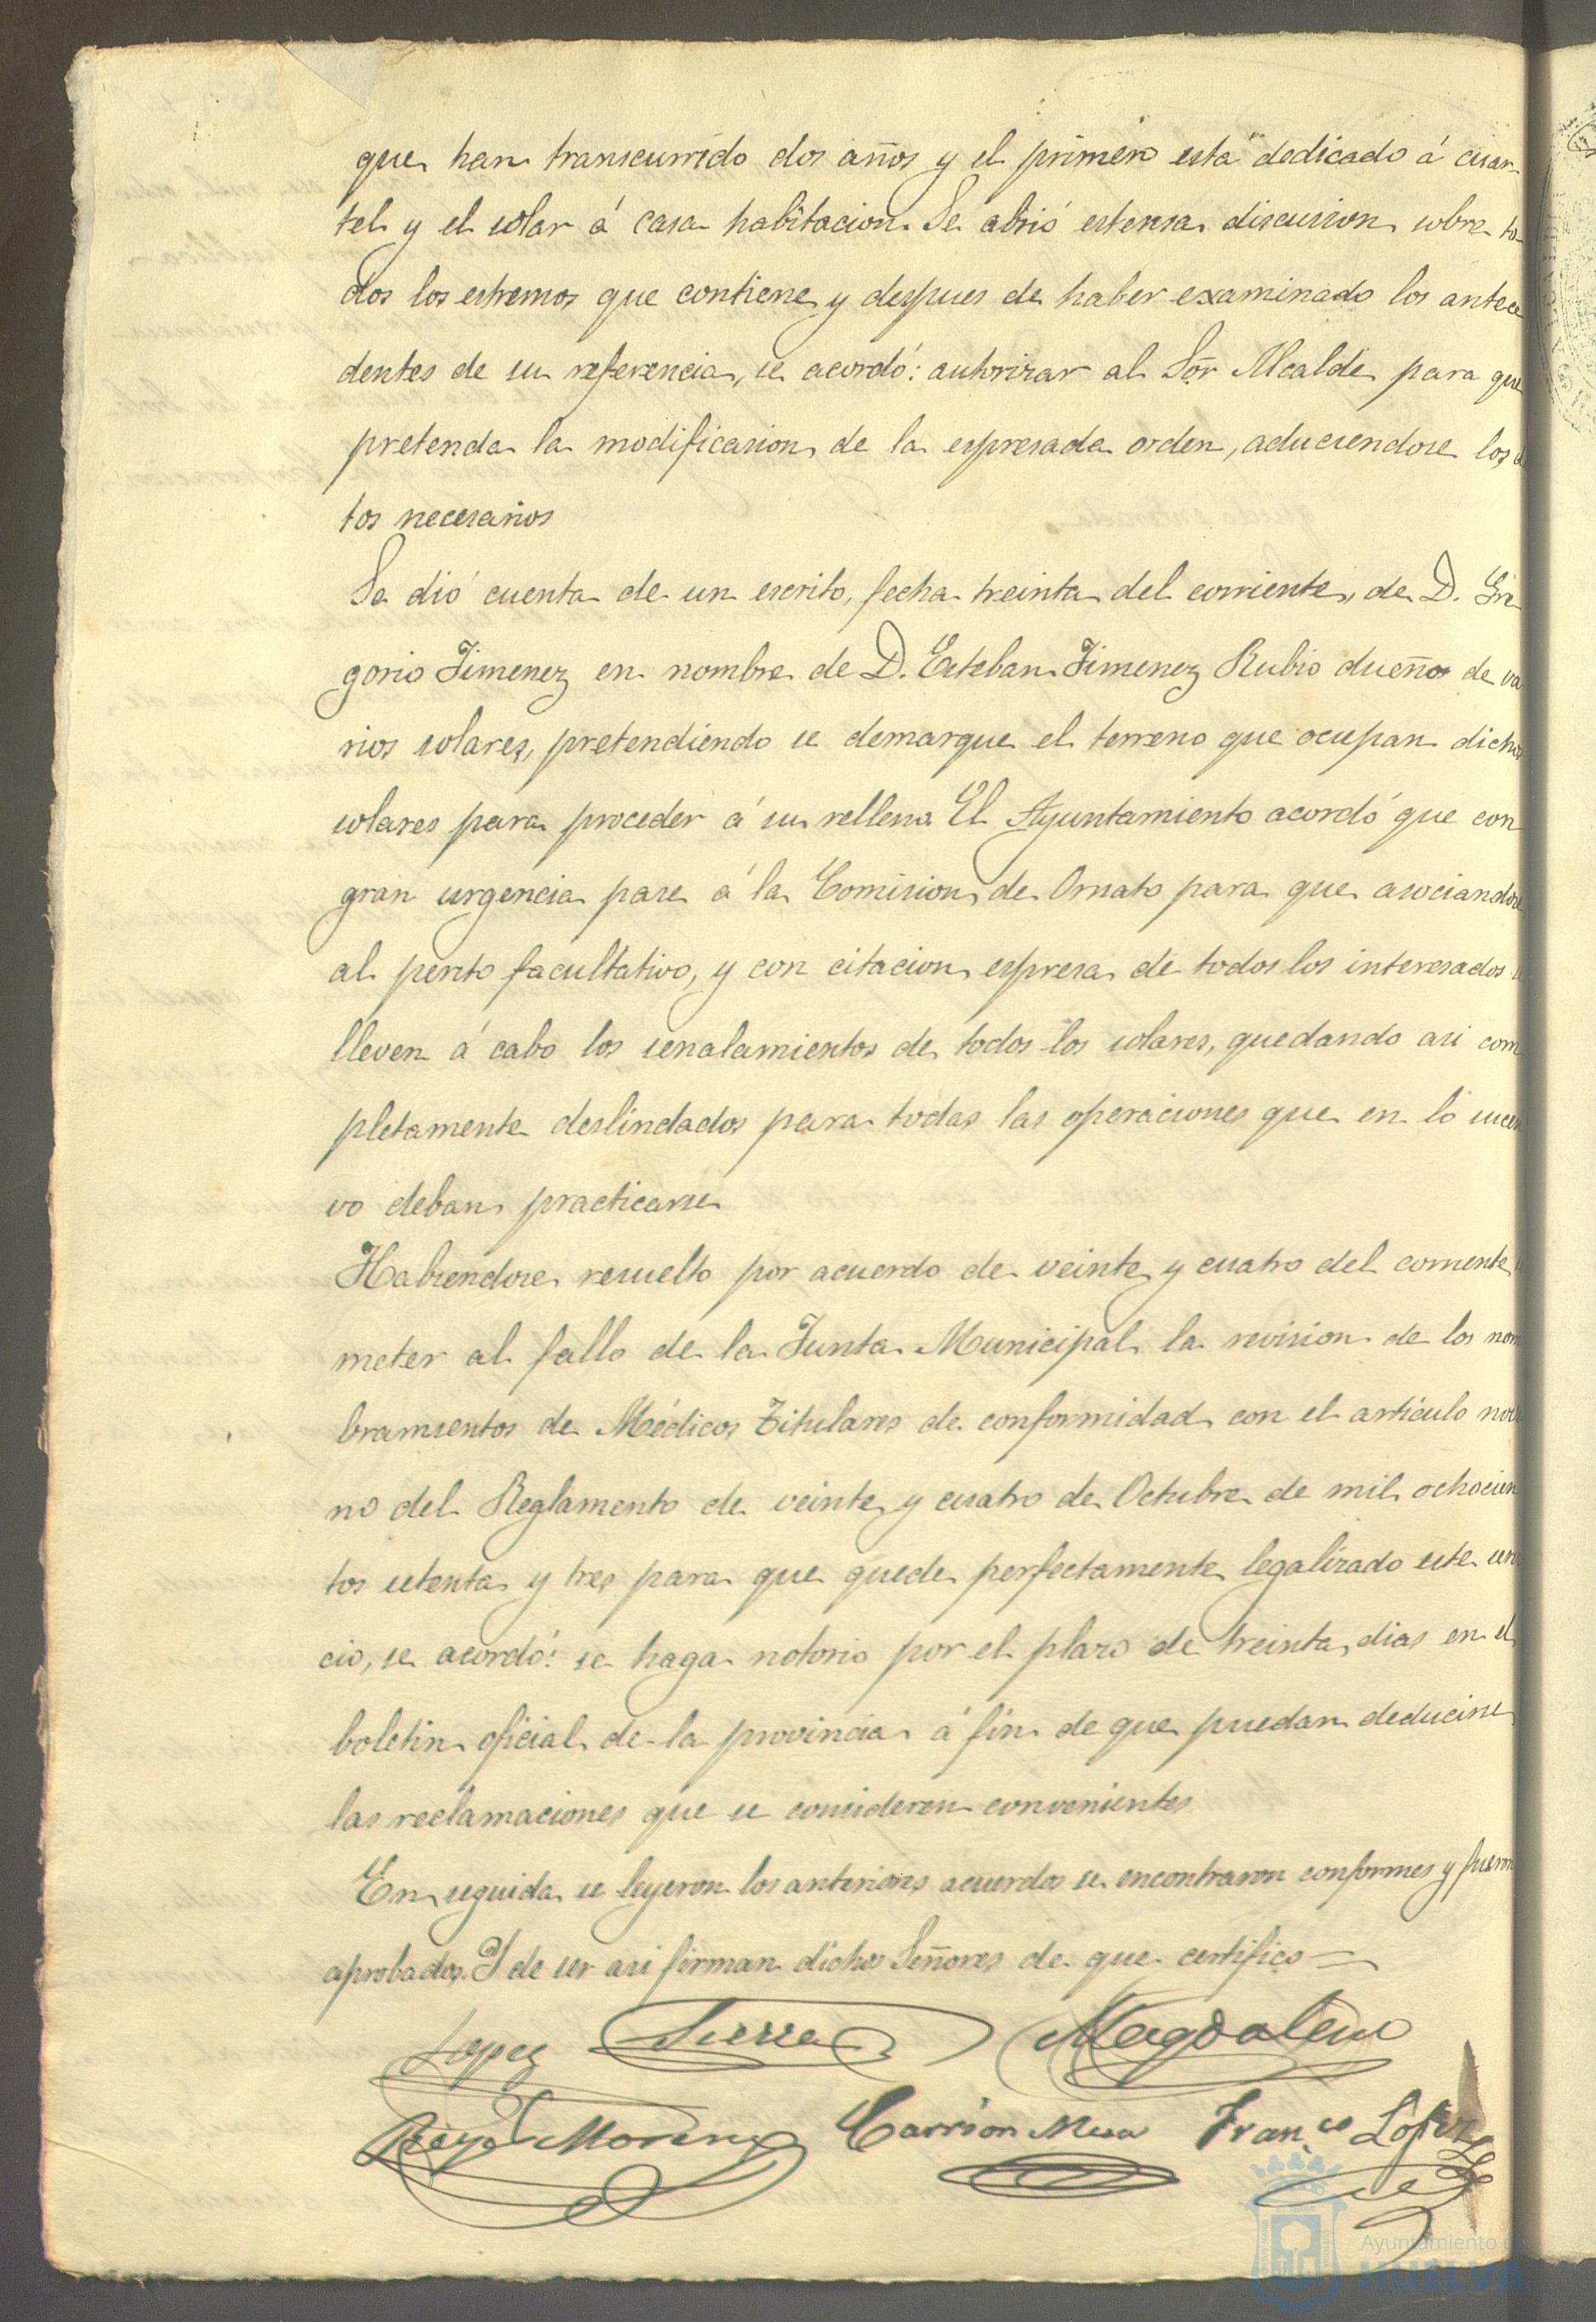 que han transcurrido dos años y el primero está dedicado á cuar-
tel y el solar á casa habitacion. Se abrió estensa discusion sobre to-
dos los estremos que contiene y despues de haber examinado los antece
dentes de su referencia, se acordó: autorizar al Sor Alcalde para que
pretenda la modificacion de la espresada orden, aduciendose los
tos necesarios
Se dió cuenta de un escrito, fecha treinta del corriente, de D. Gre
gorio Jimenez en nombre de D. Esteban Jimenez Rubio dueño de va
rios solares, pretendiendo se demarque el terreno que ocupan dichos
solares para proceder á su relleno El Ayuntamiento acordó que con
gran urgencia pase á la Comision de Ornato para que asociandose
al perito facultativo, y con citacion espresa de todos los interesados
lleven á cabo los senalamientos de todos los solares, quedando asi com
pletamente deslindados para todas las operaciones que en lo suce
vo deban practicarse
Habiendose resuelto por acuerdo de veinte y cuatro del corriente
meter al fallo de la Junta Municipal la revision de los nom
bramientos de Médicos Titulares de conformidad con el artículo nove
no del Reglamento de veinte y cuatro de Octubre de mil ochocien
tos setenta y tres para que quede perfectamente legalizado este servi
cio, se acordó: se haga notorio por el plazo de treinta dias en el
boletin oficial de la provincia á fin de que puedan deducirse
las reclamaciones que se consideren convenientes
En seguida se leyeron los anteriores acuerdos se encontraron conformes y fueron
aprobados. Y de ser asi firman dichos Señores de que certifico=
Lopez Sierra Magdaleno
Rioja Moreno Carrion Mesa Fran.co López
Ayuntamiento de
HUELVA